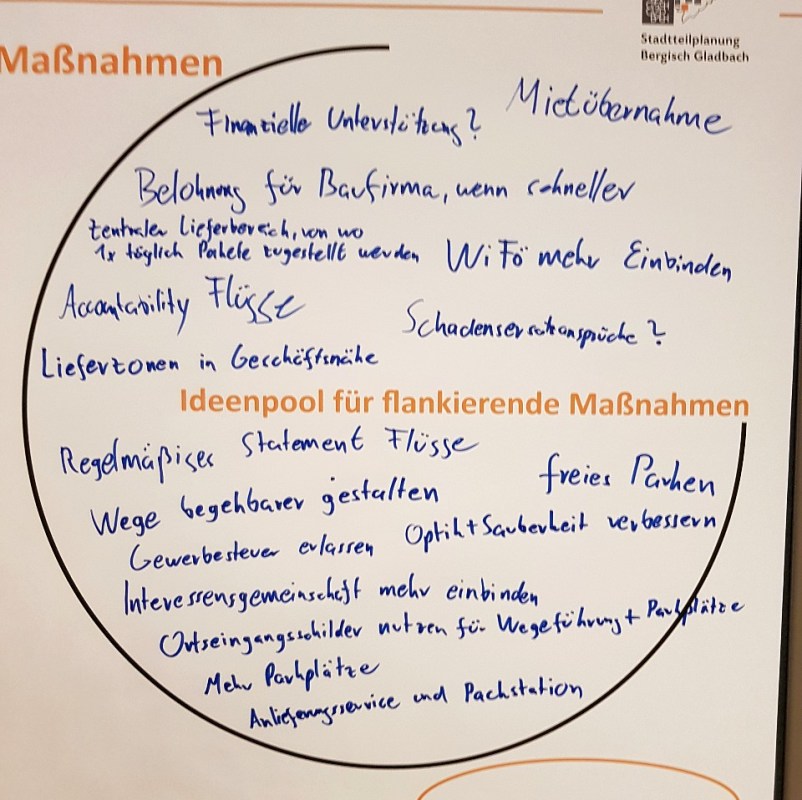 Stadtteilplanung
Bergisch Gladbach
Maßnahmen
Finanzielle Unterstützung?
Mietübernahme
Belohnung für Baufirma, wenn schneller
zentraler Lieferbereich, von wo
1x täglich Pakete zugestellt werden
WiFö mehr Einbinden
Accountability Flüsse
Schadensersatzansprüche?
Lieferzonen in Geschäftsnähe
Ideenpool für flankierende Maßnahmen
Regelmäßiges Statement Flüsse
freies Parken
Wege begehbarer gestalten
Optik + Sauberkeit verbessern
Gewerbesteuer erlassen
Interessensgemeinschaft mehr einbinden
Ortseingangsschilder nutzen für Wegeführung + Parkplätze
Mehr Parkplätze
Anlieferungsservice und Packstation